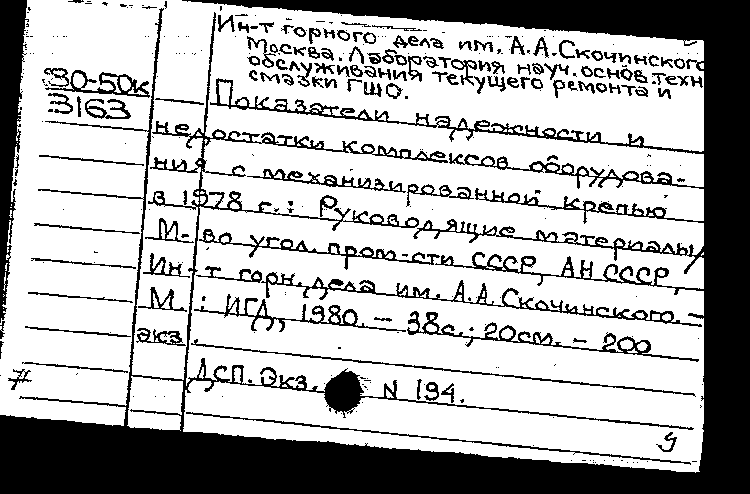 Ин-т горного дела им. А.А.Скочинского
Москва. Лаборатория науч. основ. техн
обслуживания текущего ремонта и
смазки ГШО.
80-50к
3163
Показатели надежности и
недостатки комплексов оборудова-
ния с механизированной крепью
в 1978 г.: Руководящие материалы/
М-во угол. пром-сти СССР, АН СССР,
Ин-т горн. дела им. А.А.Скочинского. –
М. : ИГД, 1980. – 38с.; 20см. – 200
экз.
ДСП. Экз. N 194.